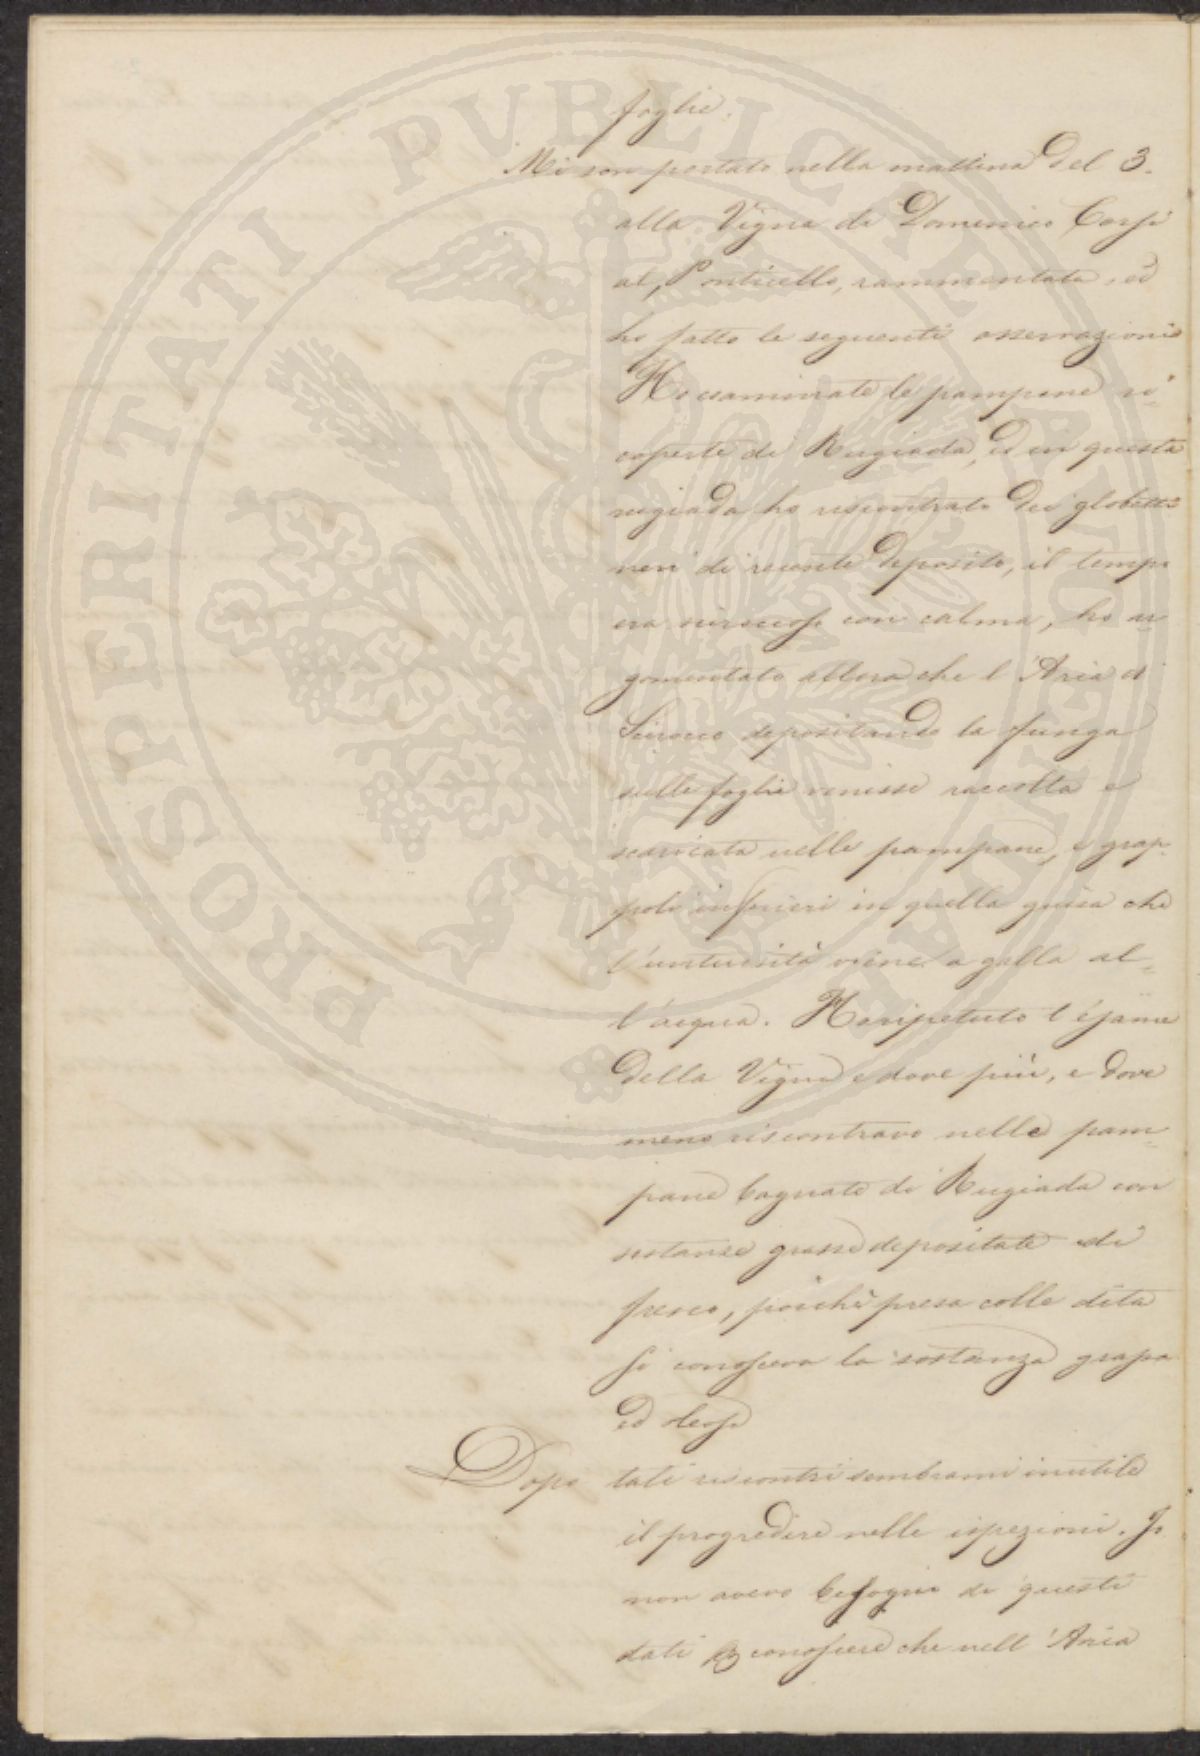 foglie.
Mi son portato nella mattina del 3.
alla Vigna di Domenico Corsi
al, Ponticello, rammentata, ed
ho fatto le seguenti osservazioni
Ho esaminate le pampane ri=
coperte di Rugiada, ed in questa
rugiada ho riscontrato dei globetti
neri di recente deposito, il tempo
era sciroccoso con calma, ho ar=
gomentato allora che l'Aria di
Scirocco depositando la funga
sulle foglie venisse raccolta e
scaricata nelle pampane, e grap=
poli inferiori in quella guisa che
l'untuosità viene a galla al=
l'acqua. Ho ripetuto l'esame
della Vigna e dove più, e dove
meno riscontravo nelle pam=
pane bagnate di Rugiada con
sostanze grasse depositate di
fresco, poichè presa colle dita
si conosceva la sostanza grassa
ed oleosa
Dopo tali riscontri sembrami inutile
il progredire nelle ispezioni. Io
non avevo bisogno di questi
dati conoscere che nell'Aria
PROSPERITATI PUBLICAE AUGENDAE